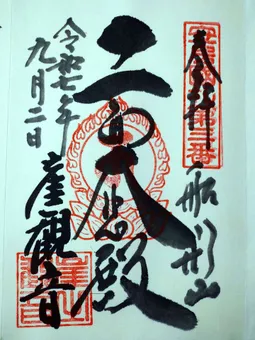 奉拝
船形山
大悲殿
崖觀音
令和七年
九月二日